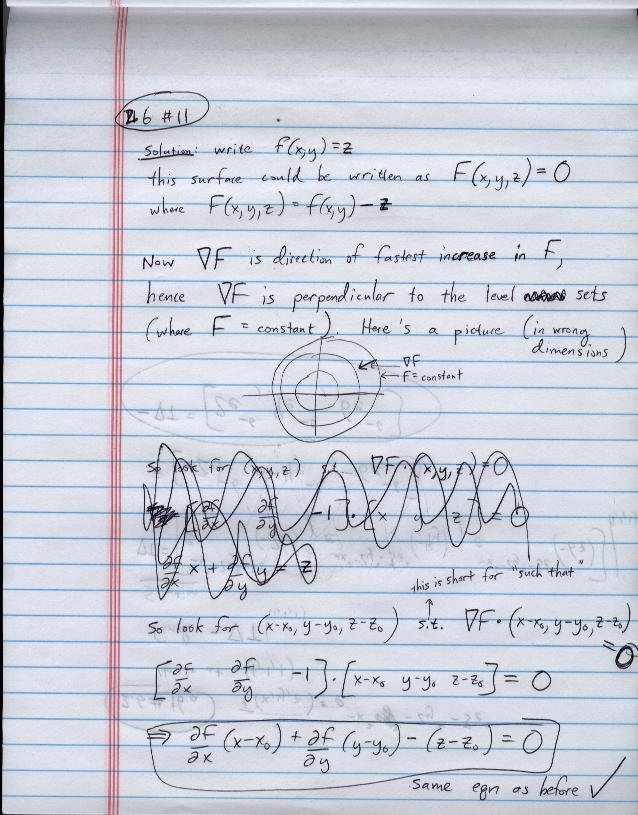 2.6 #11
Solution: write f(x,y) = z
this surface could be written as F(x,y,z) = 0
where F(x,y,z) = f(x,y) - z
Now ∇F is direction of fastest increase in F,
hence ∇F is perpendicular to the level sets
(where F = constant). Here's a picture (in wrong dimensions)
∇F
F = constant
So look for (x,y,z) s.t. ∇F · (x,y,z) = 0
[∂f/∂x ∂f/∂y -1] · [x y z] = 0
∂f/∂x x + ∂f/∂y y = z
this is short for "such that"
So look for (x-x₀, y-y₀, z-z₀) s.t. ∇F · (x-x₀, y-y₀, z-z₀) = 0
[∂f/∂x ∂f/∂y -1] · [x-x₀ y-y₀ z-z₀] = 0
⇒ ∂f/∂x (x-x₀) + ∂f/∂y (y-y₀) - (z-z₀) = 0
Same eqn as before ✓